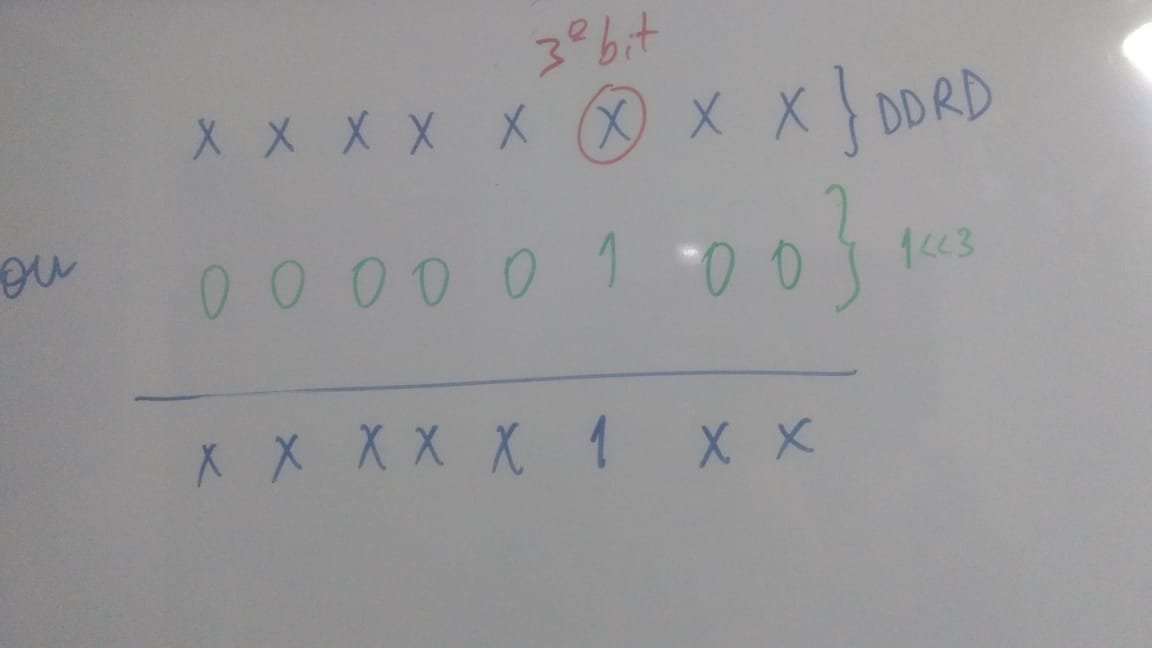 3º bit
X X X X X X X X } DDRD
ou 0 0 0 0 0 1 0 0 } 1<<3
X X X X X 1 X X